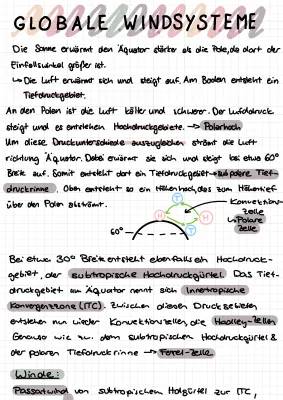 GLOBALE WINDSYSTEME
Die Sonne erwärmt den Äquator stärker als die Pole, da dort der
Einfallswinkel größer ist.
↳ Die Luft erwärmt sich und steigt auf. Am Boden entsteht ein
Tiefdruckgebiet.
An den Polen ist die Luft kälter und schwerer. Der Luftdruck
steigt und es entstehen Hochdruckgebiete. → Polarhoch
Um diese Druckunterschiede auszugleichen strömt die Luft
richtung Äquator. Dabei erwärmt sie sich und steigt bei etwa 60°
Breite auf. Somit entsteht dort ein Tiefdruckgebiet → subpolare Tief-
druckrinne. Oben entsteht so ein Höhenhoch, das zum Höhentief
über den Polen abströmt.
Konvektions-
zelle
↳ Polare
Zelle
T
H
H
T
60°
Bei etwa 30° Breite entsteht ebenfalls ein Hochdruck-
gebiet, der subtropische Hochdruckgürtel. Das Tief-
druckgebiet am Äquator nennt sich Innertropische
Konvergenzzone (ITC). Zwischen diesen Druckgebieten
entstehen nun wieder Konvektionszellen, die Hadley-Zellen
Genauso wie zw. dem subtropischen Hochdruckgürtel &
der polaren Tiefdruckrinne → Ferrel-Zelle
Winde:
Passatwind von subtropischen Hochgürtel zur ITC,